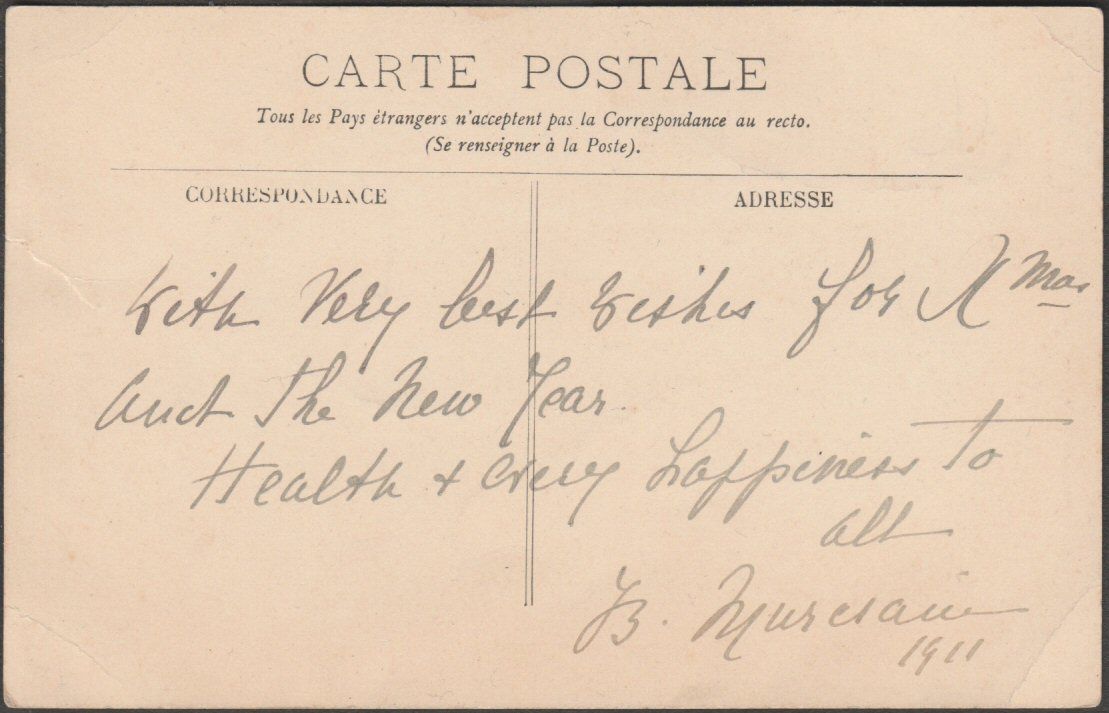 CARTE POSTALE
Tous les Pays étrangers n'acceptent pas la Correspondance au recto.
(Se renseigner à la Poste).
CORRESPONDANCE
ADRESSE
With Very best wishes for Xmas
And The New Year.
Health + every happiness To
all
B.
1911